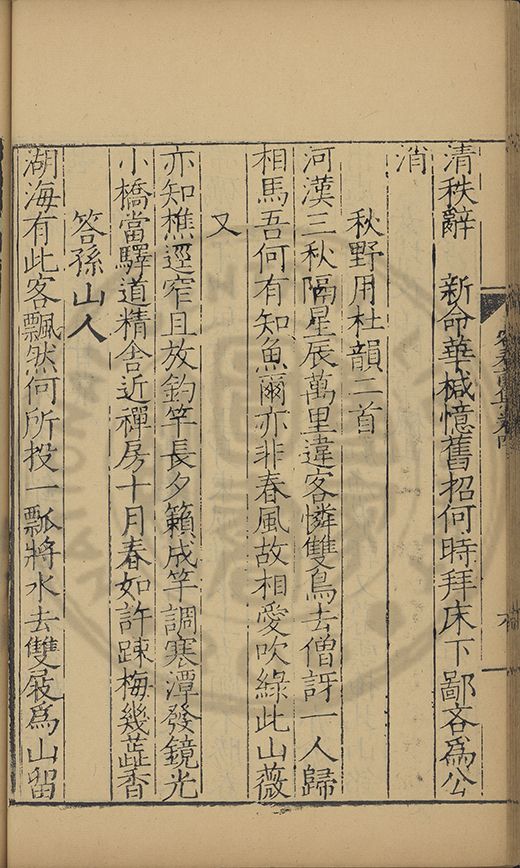 清秩辭　新命華椷憶舊招何時拜床下鄙吝爲公
消
秋野用杜韻二首
河漢三秋隔星辰萬里違客憐雙鳥去僧訝一人歸
相馬吾何有知魚爾亦非春風故相愛吹綠此山薇
又
亦知樵逕窄且放釣竿長夕籟成竽調寒潭發鏡光
小橋當驛道精舍近禪房十月春如許踈梅幾蕋香
答孫山人
湖海有此客飄然何所投一瓢將水去雙屐爲山留